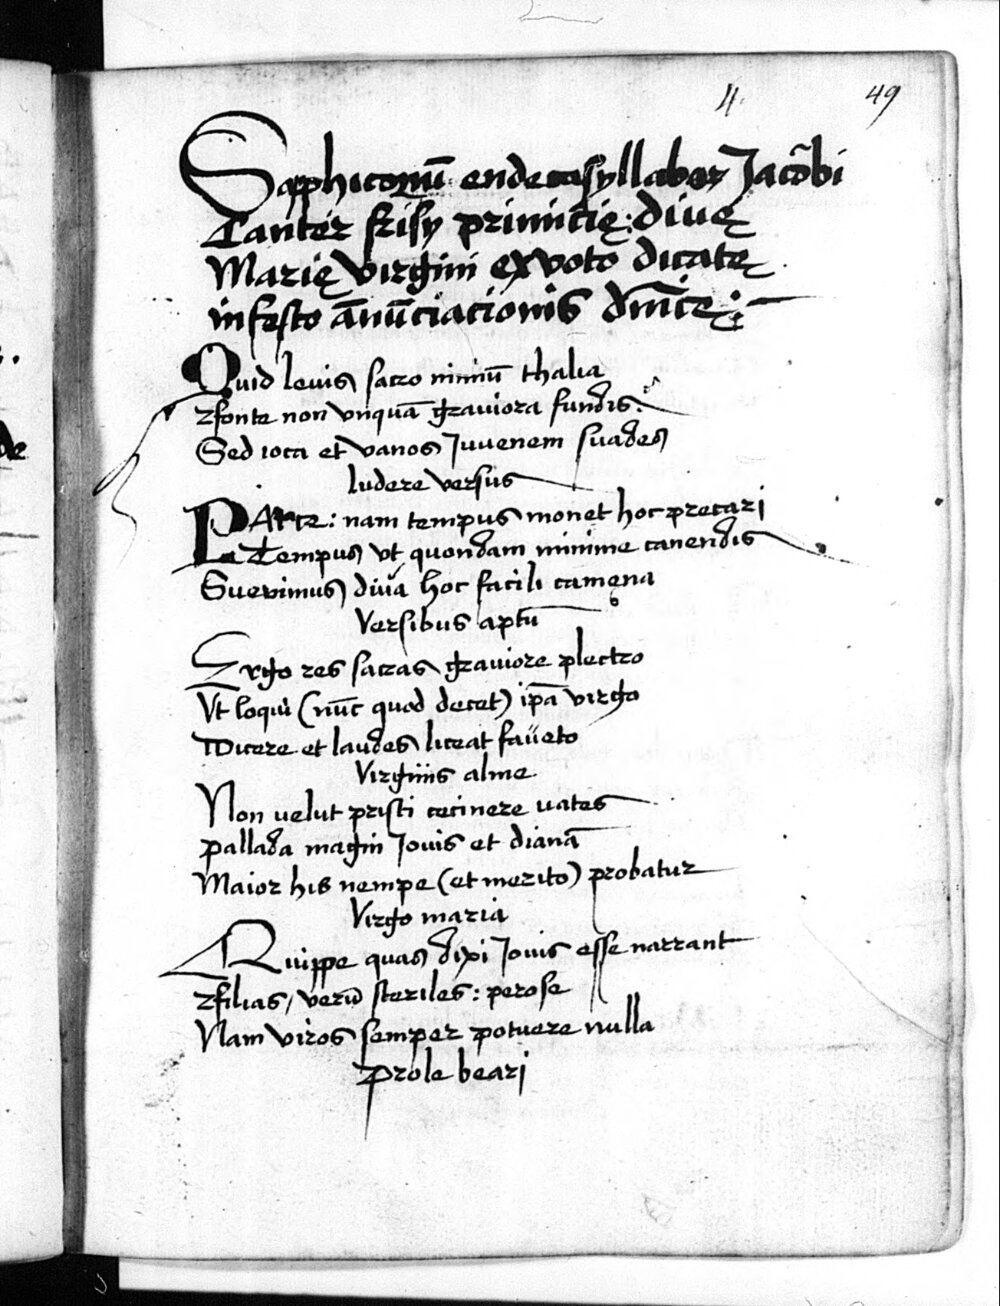 4. 49
Sapphicorū endecasyllabor Jacōbi
Canter frisÿ primitię: diuę
Marię virgini ex voto dicatę
in festo ānūciacionis dn̄ice:
Quid leuis sacro nimiū thalia
fonte non vnquā grauiora fundis:
Sed ioca et vanos Juuenem suades
ludere versus
PArce: nam tempus monet hoc precari
Tempus vt quondam minime canendis
Sueuimus diua hoc facili camęna
Versibus aptū
Ergo res sacras grauiore plectro
Vt loqui (nūc quod decet) ip̄a virgo
Dicere et laudes liceat faueto
Virginis alme
Non uelut prisci cecinere uates
pallada magni Jouis et dianā
Maior his nempe (et merito) probatur
Virgo maria
Quippe quas dixi Jouis esse narrant
filias, verū steriles: perose
Nam viros semper potuere nulla
prole beari